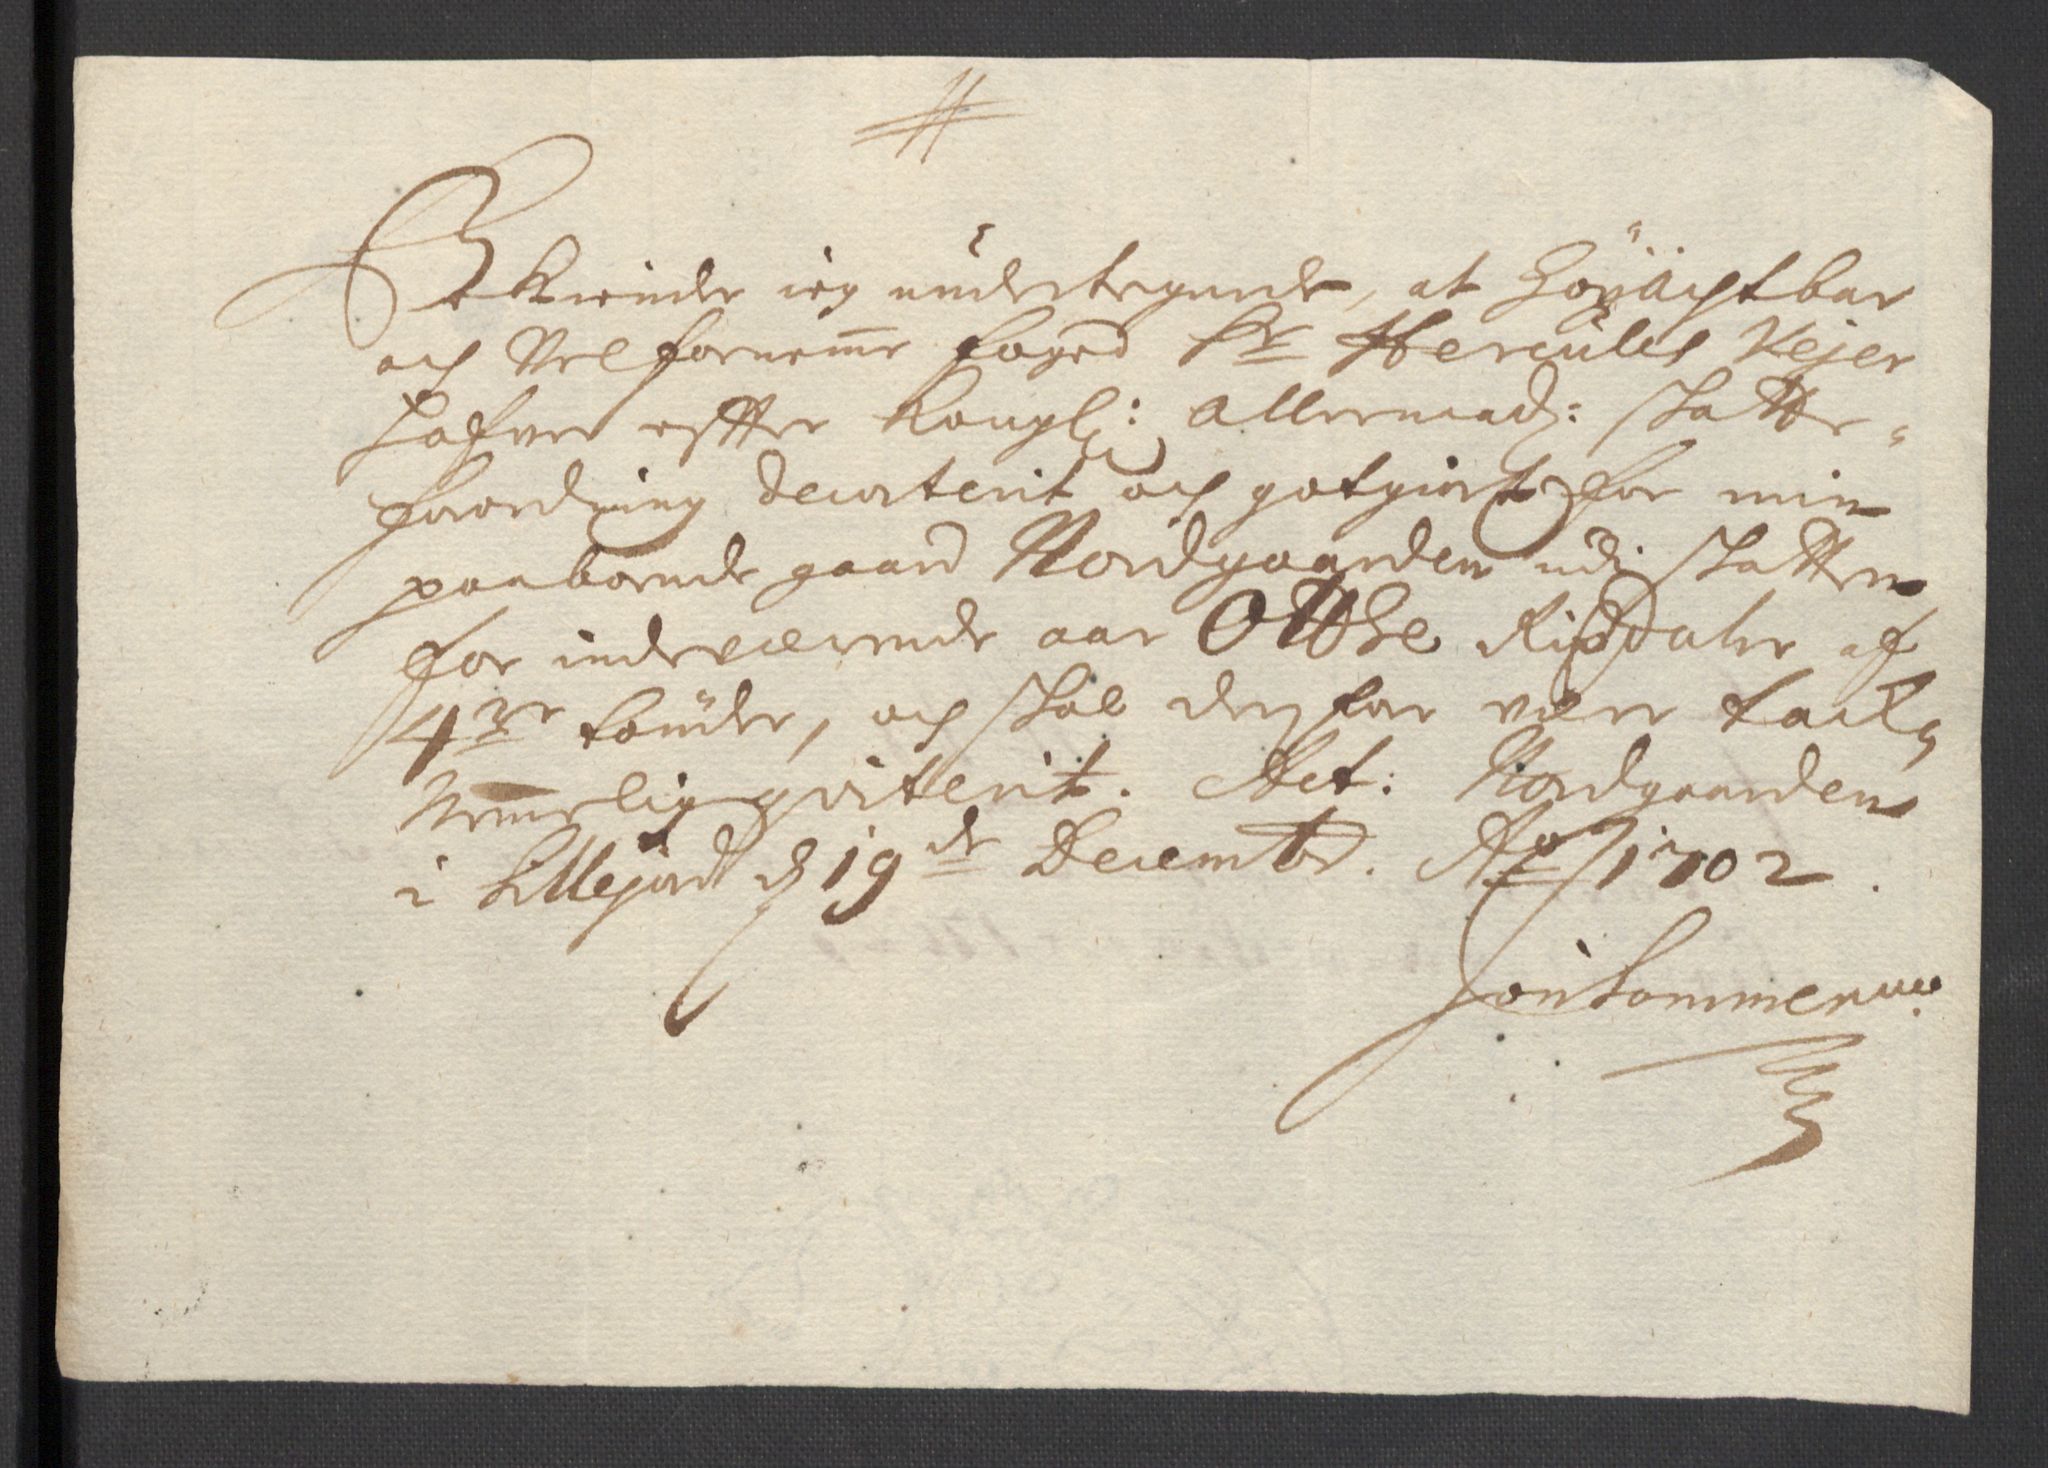 Bekiender ieg undertegnede, at Høyächtbar
och Velfornemme foged Sr Hercules Vejer
hafver effter Kongl: allernaad: skatte-
forordning decorterit och gotgiort for min
paaboende gaard Nordgaarden udi skatten
for indeværende aar Otthe Rixdaler af
4re tønder, och skal derfor være tack-
nemmelig qviterit. Act: Nordgaarden
i Sillejord d 19de Decembr. Ao 1702.
Jon Sommer